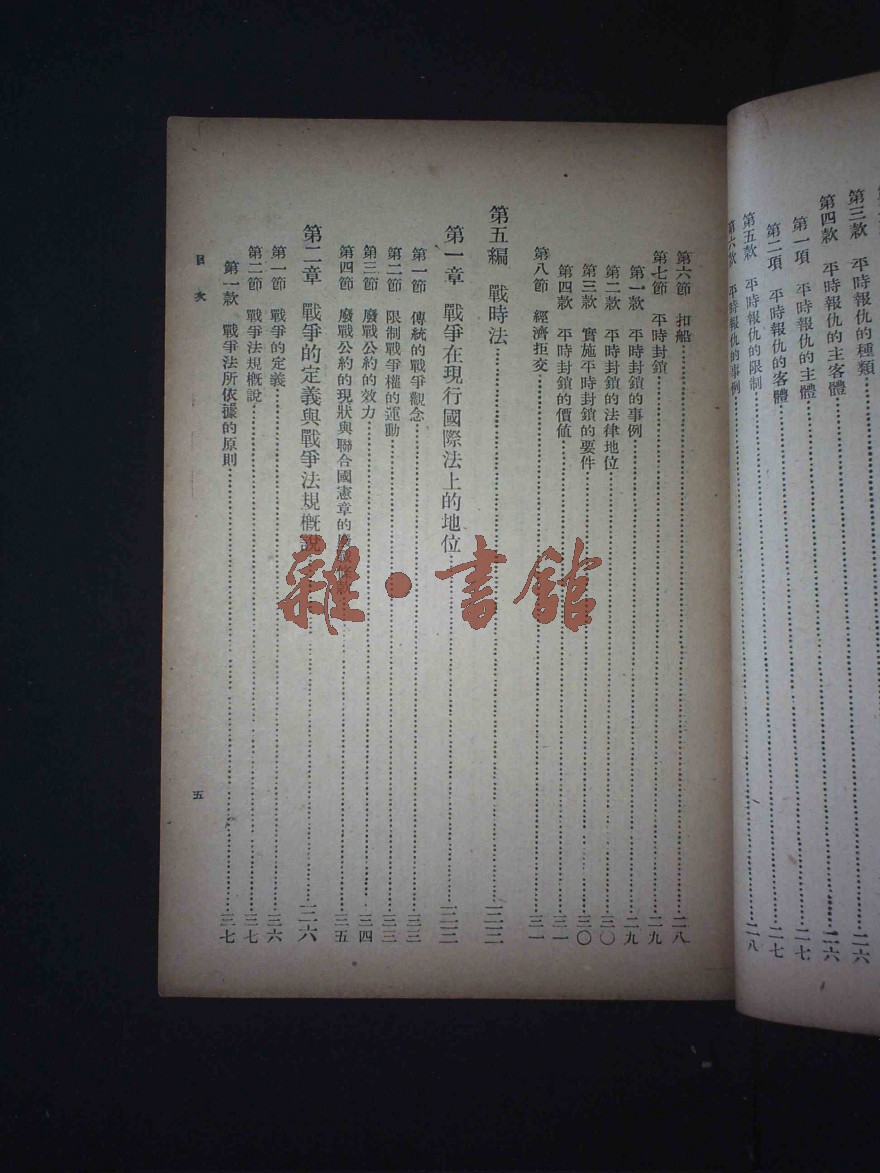 第三款 平時報仇的種類……二六
第四款 平時報仇的主客體……二六
第一項 平時報仇的主體……二七
第二項 平時報仇的客體……二七
第五款 平時報仇的限制……二八
第六款 平時報仇的事例……
第六節 扣船……二八
第七節 平時封鎖……二九
第一款 平時封鎖的事例……二九
第二款 平時封鎖的法律地位……三〇
第三款 實施平時封鎖的要件……三〇
第四款 平時封鎖的價值……三一
第八節 經濟拒交……三一
第五編 戰時法……三三
第一章 戰爭在現行國際法上的地位……三三
第一節 傳統的戰爭觀念……三三
第二節 限制戰爭權的運動……三三
第三節 廢戰公約的效力……三四
第四節 廢戰公約的現狀與聯合國憲章的廢戰條款……三五
第二章 戰爭的定義與戰爭法規概說……三六
第一節 戰爭的定義……三六
第二節 戰爭法規概說……三七
第一款 戰爭法所依據的原則……三七
目次
五
雜·書館